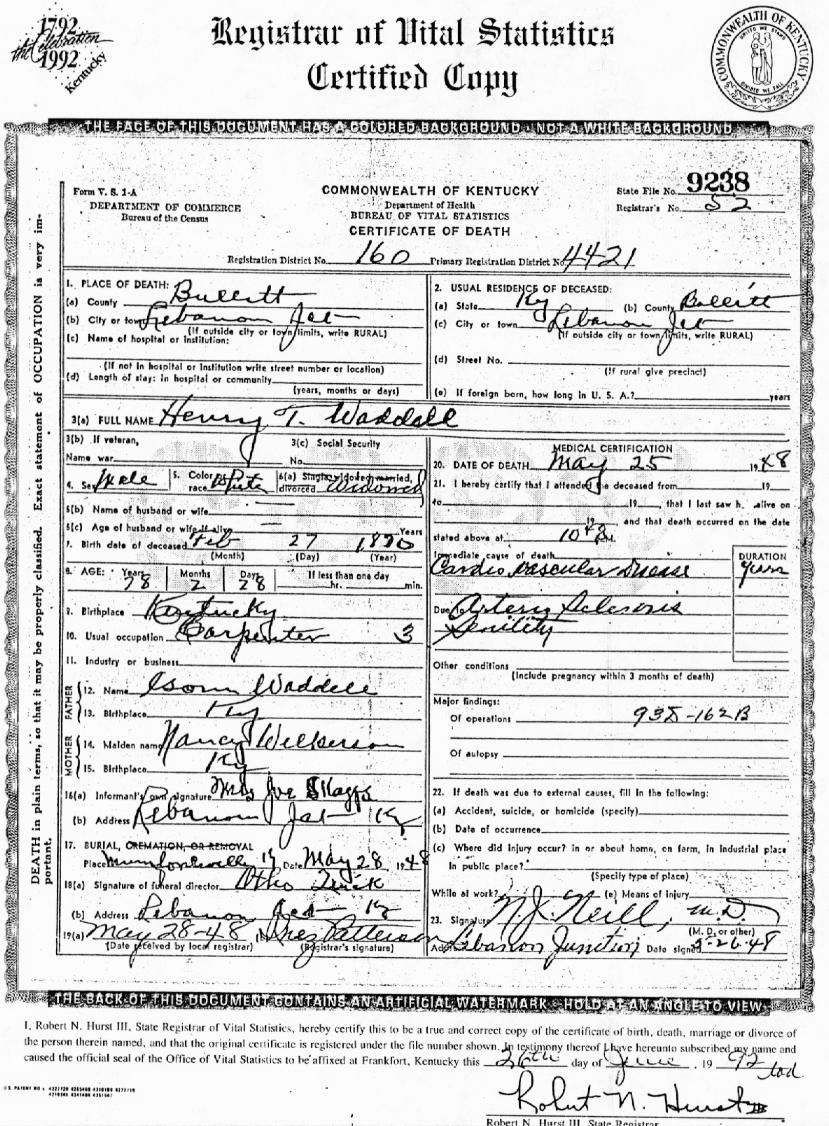 1792
the Celebration
1992
Kentucky
Registrar of Vital Statistics
Certified Copy
COMMONWEALTH OF KENTUCKY
UNITED WE STAND
DIVIDED WE FALL
THE FACE OF THIS DOCUMENT HAS A COLORED BACKGROUND - NOT A WHITE BACKGROUND
DEATH in plain terms, so that it may be properly classified. Exact statement of OCCUPATION is very im-
portant.
Form V. S. 1-A
DEPARTMENT OF COMMERCE
Bureau of the Census
COMMONWEALTH OF KENTUCKY
Department of Health
BUREAU OF VITAL STATISTICS
CERTIFICATE OF DEATH
State File No. 9238
Registrar's No. 52
Registration District No. 160 Primary Registration District No. 4421
1. PLACE OF DEATH:
(a) County Bullitt
(b) City or town Lebanon Jct
(If outside city or town limits, write RURAL)
(c) Name of hospital or institution:
(If not in hospital or institution write street number or location)
(d) Length of stay: in hospital or community
(years, months or days)
2. USUAL RESIDENCE OF DECEASED:
(a) State Ky (b) County Bullitt
(c) City or town Lebanon Jct
(If outside city or town limits, write RURAL)
(d) Street No.
(If rural give precinct)
(e) If foreign born, how long in U. S. A.? years
3(a) FULL NAME Henry T. Waddell
3(b) If veteran,
Name war
3(c) Social Security
No.
4. Sex Male 5. Color or race White 6(a) Single, widowed, married, divorced Widowed
5(b) Name of husband or wife
5(c) Age of husband or wife if alive Years
7. Birth date of deceased Feb 27 1870
(Month) (Day) (Year)
8. AGE: Years 78 Months 2 Days 28 If less than one day
hr. min.
9. Birthplace Kentucky
10. Usual occupation Carpenter 3
11. Industry or business
FATHER
12. Name Isom Waddell
13. Birthplace Ky
MOTHER
14. Maiden name Nancy Wilkerson
15. Birthplace Ky
16(a) Informant's own signature Mrs Joe Skaggs
(b) Address Lebanon Jct Ky
17. BURIAL, CREMATION, OR REMOVAL
Place Munfordsville Ky Date May 28 1948
18(a) Signature of funeral director Otho Quick
(b) Address Lebanon Jct Ky
19(a) May 28-48 (b) Patterson
(Date received by local registrar) (Registrar's signature)
MEDICAL CERTIFICATION
20. DATE OF DEATH May 25 1948
21. I hereby certify that I attended the deceased from 19
to 19 , that I last saw h alive on
19 , and that death occurred on the date
stated above at 10
Immediate cause of death
Cardio vascular Disease
DURATION
years
Due to Artery Sclerosis
Senility
Other conditions
(Include pregnancy within 3 months of death)
Major findings:
Of operations 93D-162B
Of autopsy
22. If death was due to external causes, fill in the following:
(a) Accident, suicide, or homicide (specify)
(b) Date of occurrence
(c) Where did injury occur? in or about home, on farm, in industrial place
In public place?
(Specify type of place)
While at work? (e) Means of injury
23. Signature N. J. Neill, M.D.
(M. D. or other)
Address Lebanon Junction Date signed 5-26-48
THE BACK OF THIS DOCUMENT CONTAINS AN ARTIFICIAL WATERMARK - HOLD AT AN ANGLE TO VIEW
I, Robert N. Hurst III, State Registrar of Vital Statistics, hereby certify this to be a true and correct copy of the certificate of birth, death, marriage or divorce of
the person therein named, and that the original certificate is registered under the file number shown. In testimony thereof I have hereunto subscribed my name and
caused the official seal of the Office of Vital Statistics to be affixed at Frankfort, Kentucky this 26th day of June , 19 92
Robert N. Hurst III
Robert N. Hurst III, State Registrar